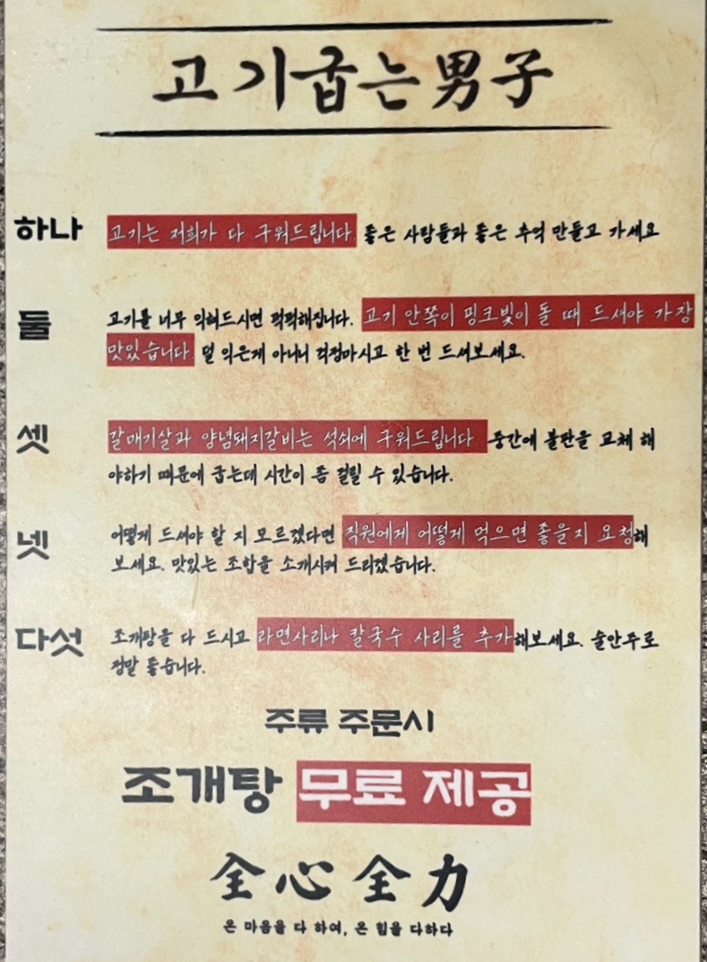 고기굽는男子
하나 고기는 저희가 다 구워드립니다. 좋은 사람들과 좋은 추억 만들고 가세요
둘 고기를 너무 익혀드시면 퍽퍽해집니다. 고기 안쪽이 핑크빛이 돌 때 드셔야 가장
맛있습니다. 덜 익은게 아니니 걱정마시고 한 번 드셔보세요.
셋 갈매기살과 양념돼지갈비는 석쇠에 구워드립니다. 중간에 불판을 교체 해
야하기 때문에 굽는데 시간이 좀 걸릴 수 있습니다.
넷 어떻게 드셔야 할 지 모르겠다면 직원에게 어떻게 먹으면 좋을지 요청해
보세요. 맛있는 조합을 소개시켜 드리겠습니다.
다섯 조개탕을 다 드시고 라면사리나 칼국수 사리를 추가해보세요. 술안주로
정말 좋습니다.
주류 주문시
조개탕 무료 제공
全心全力
온 마음을 다 하여, 온 힘을 다하다